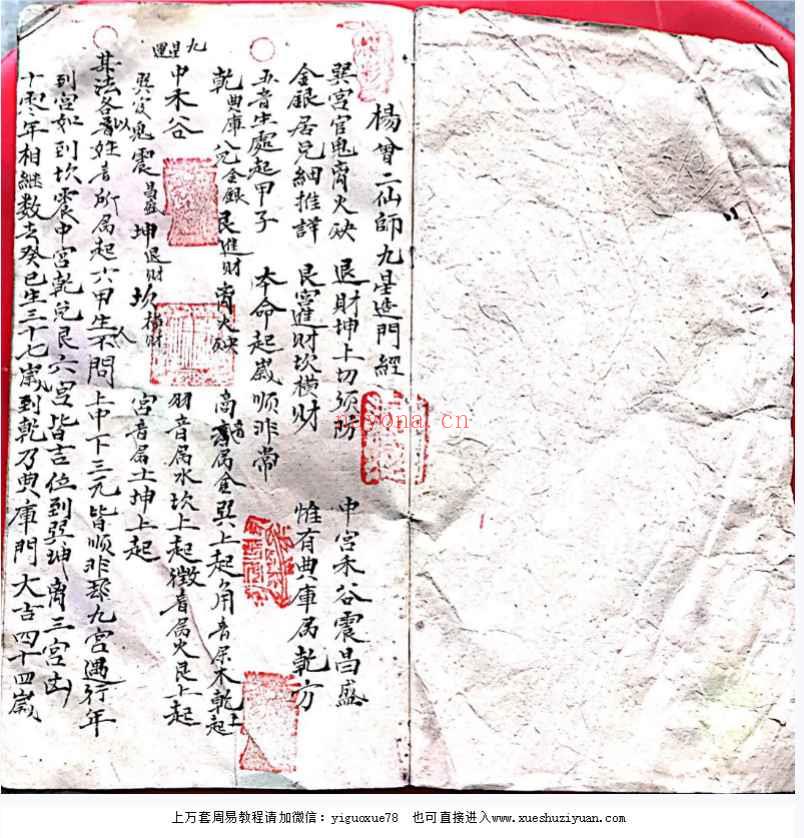 楊曾二仙師九星造門經
巽宮官鬼离火殃 退財坤上切須防 中宮禾谷震昌盛
金銀居兌細推詳 艮宮進財坎橫財 惟有典庫屬乾方
五音生處起甲子 本命起歲順非常
乾典庫 兌金銀 艮進財 离火殃 商音屬金巽上起角音屬木乾上起
九星遁
中禾谷 羽音屬水坎上起徵音屬火艮上起
巽官鬼震昌盛坤退財坎橫財 宮音屬土坤上起
其法各以音姓音所屬起六甲生人不問上中下三元皆順非郡九宮遇行年
到宮如到坎震中宮乾兌艮六宮皆吉位到巽坤离三宮凶
十零年相継数去癸巳生三十七歲到乾乃典庫門大吉四十四歲
nayona.cn
上万套周易教程请加微信：yiguoxue78 也可直接进入www.xueshuziyuan.com